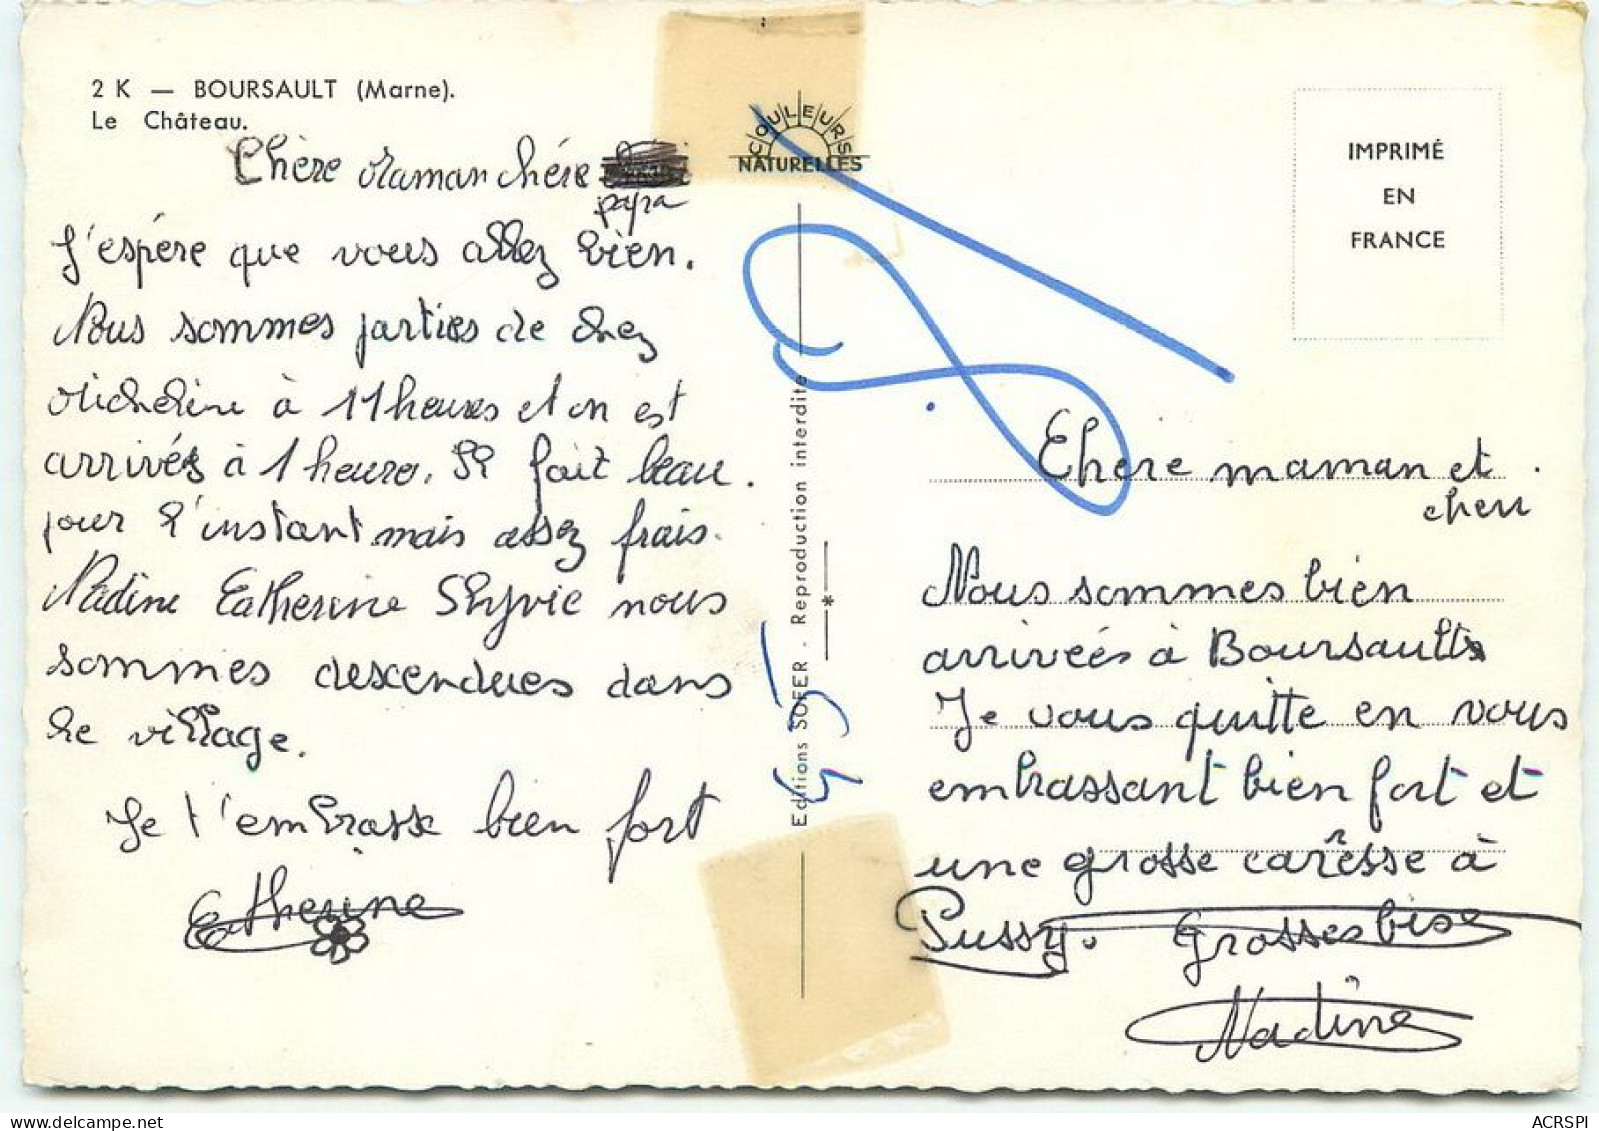 2 K — BOURSAULT (Marne).
Le Château.
Chère maman chére
papa
J'espére que vous allez bien.
Nous sommes parties de chez
Micheline à 11 heures et on est
arrivés à 1 heure. Il fait beau.
pour l'instant mais assez frais.
Nadine Catherine Shyvie nous
sommes descendues dans
le village.
Je t'embrasse bien fort
Catherine
COULEURS
NATURELLES
Editions SOFER . Reproduction interdite
IMPRIMÉ
EN
FRANCE
Chere maman et
cheri
Nous sommes bien
arrivées à Boursault
Je vous quitte en vous
embrassant bien fort et
une grosse caresse à
Pussy. Grosses bise
Nadine
ACRSPI